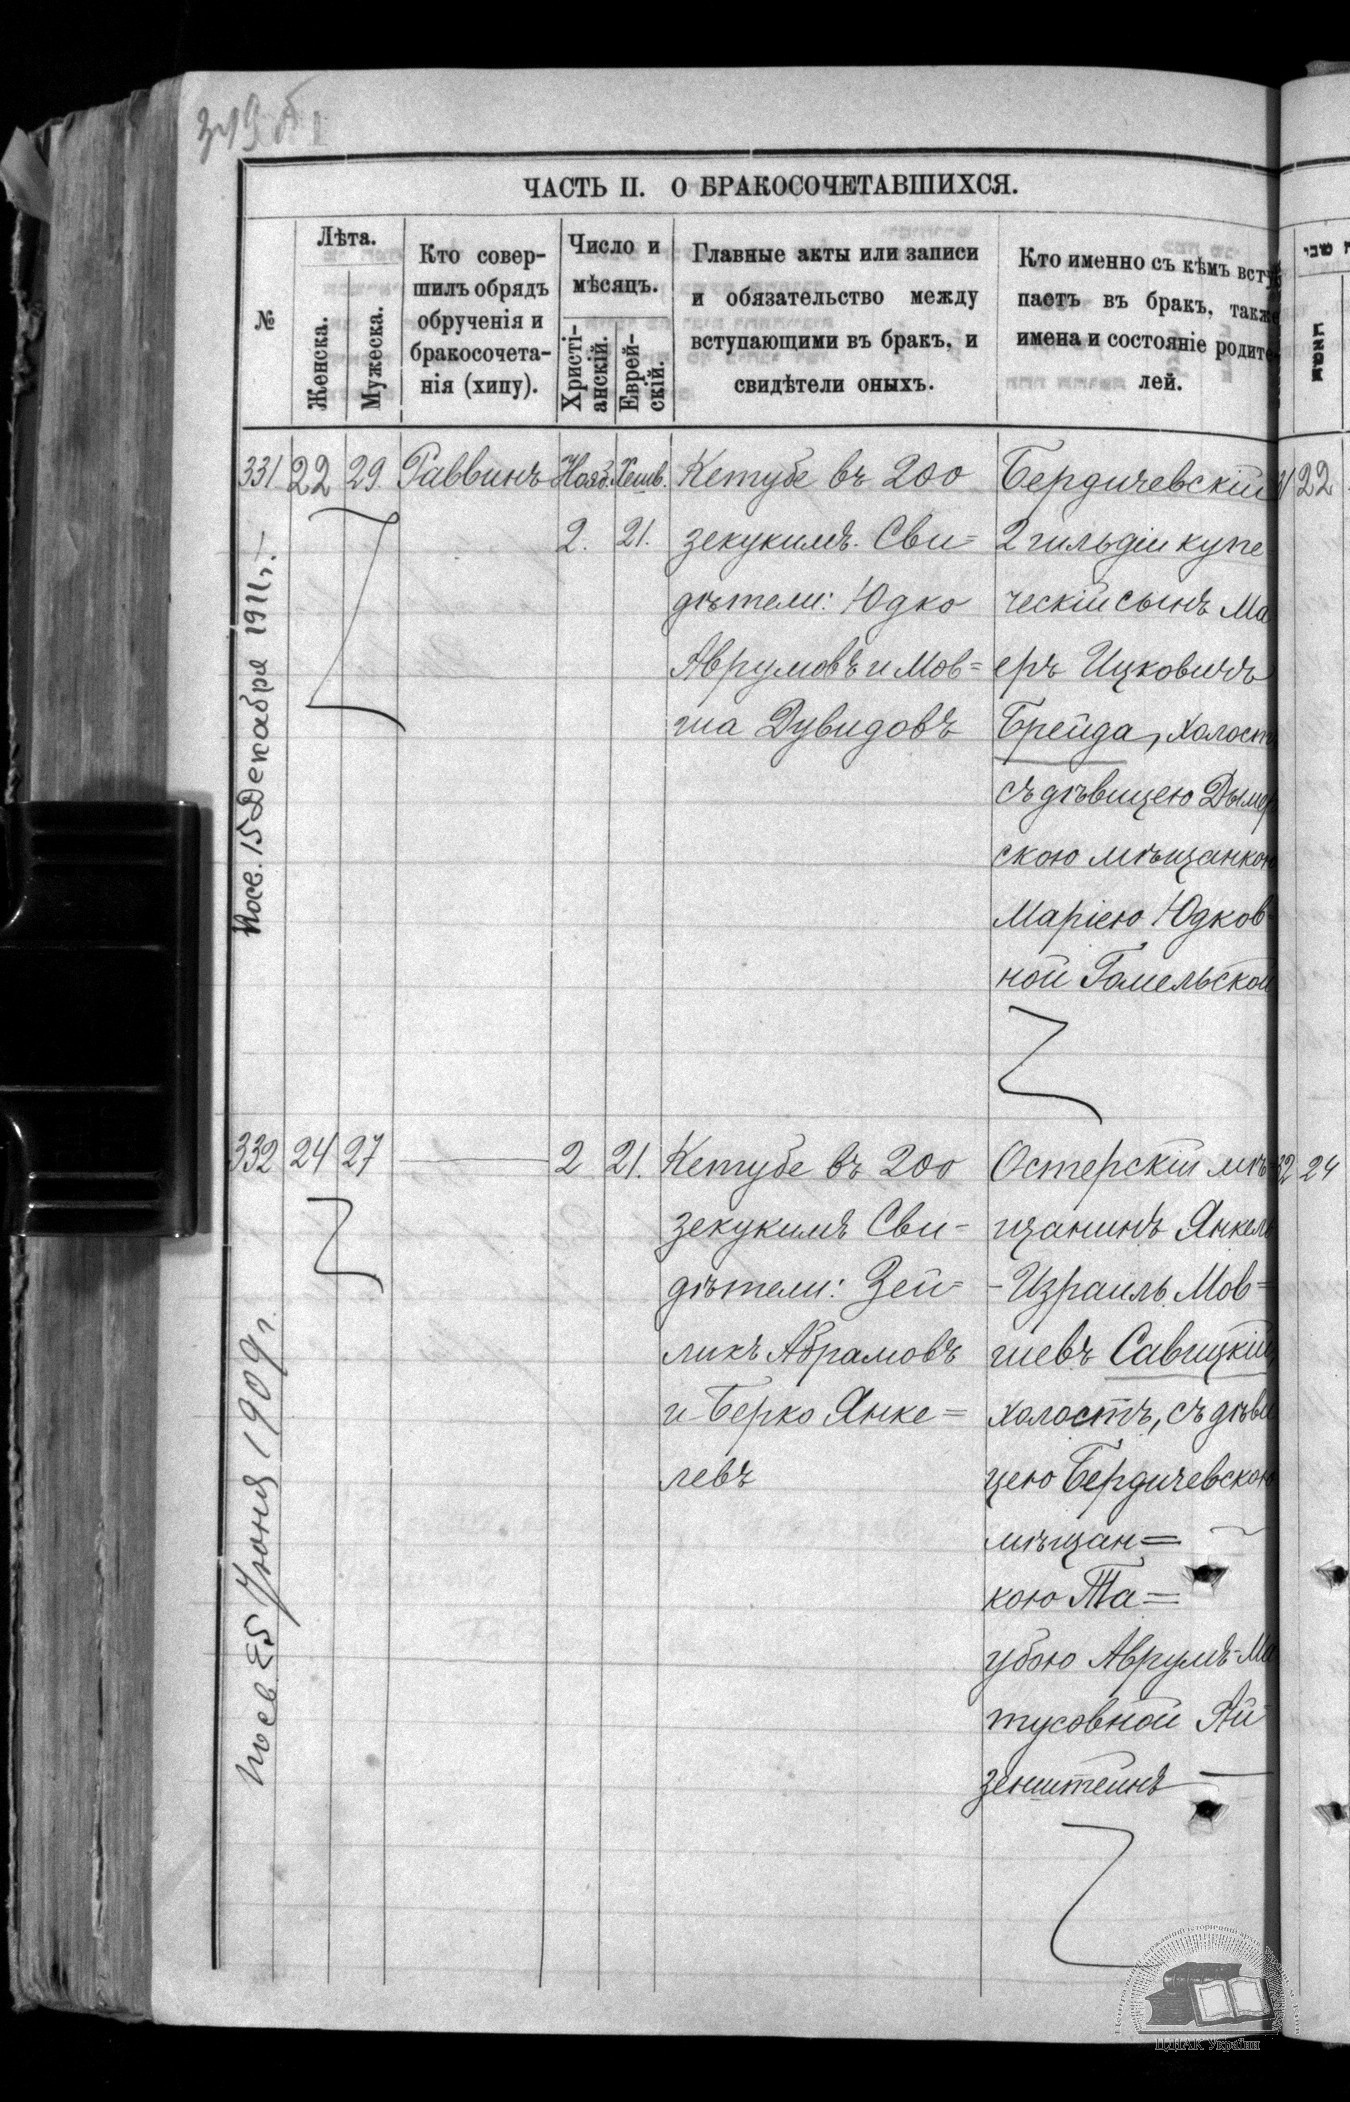 ЧАСТЬ II. О БРАКОСОЧЕТАВШИХСЯ.
№
Лѣта.
Женска.
Мужеска.
Кто совер-
шилъ обрядъ
обрученія и
бракосочета-
нія (хипу).
Число и
мѣсяцъ.
Христі-
анскій.
Еврей-
скій.
Главные акты или записи
и обязательство между
вступающими въ бракъ, и
свидѣтели оныхъ.
Кто именно съ кѣмъ всту-
паетъ въ бракъ, также
имена и состояніе родите-
лей.
331 22 29 Раввинъ Нояб. Хешв.
2. 21.
Кетубе въ 200
зекукимъ. Сви=
дѣтели: Юдко
Аврумовъ и Мов=
ша Дувидовъ
Бердичевскій
2 гильдіи купе
ческій сынъ Ма
еръ Ицковичъ
Брейда, холостъ
съ дѣвицею Дымер
скою мѣщанкою
Маріею Юдков
ной Гомельской
22
332 24 27 2 21.
Кетубе въ 200
зекукимъ Сви-
дѣтели: Зей=
ликъ Абрамовъ
и Берко Янке=
левъ
Остерскій мѣ
щанинъ Янкель
-Израиль Мов=
шевъ Савицкій,
холостъ, съ дѣви
цею Бердичевскою
мѣщан=
кою Та=
убою Аврумъ-Ма
тусовной Ай
зенштейнъ
24
15 Декабря 1911 г.
Іюня 1909 г.
ЦДІАК України